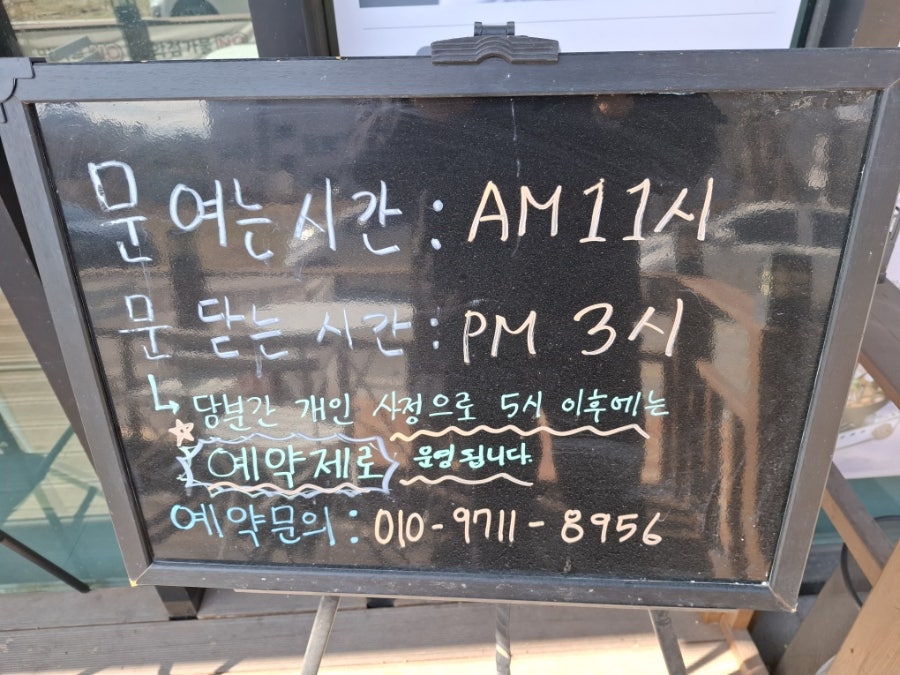 문 여는 시간 : AM 11시
문 닫는 시간 : PM 3시
↳ 당분간 개인 사정으로 5시 이후에는
☆ 예약제로 운영됩니다.
예약문의 : 010-9711-8956